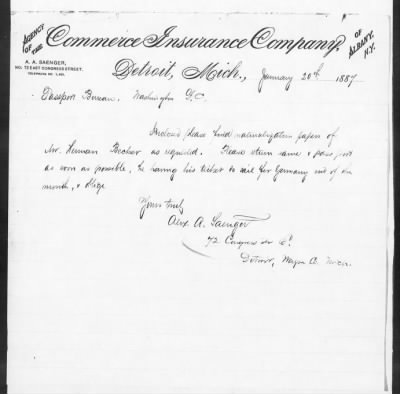 AGENCY OF THE Commerce Insurance Company, OF ALBANY, N.Y.
A. A. SAENGER,
NO. 72 EAST CONGRESS STREET.
TELEPHONE NO.
Detroit, Mich., January 20th 1887
Passport Bureau. Washington D.C.
Enclosed please find naturalization papers of
Mr. Herman Becker as requested. Please return same & pass port
as soon as possible, he having his ticket to sail for Germany end of the
month, & oblige
Yours truly
Alex. A. Saenger
72 Congress St E.
Detroit, Wayne Co. Mich.